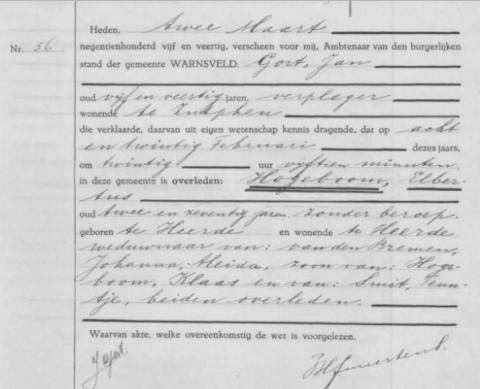 Heden, twee Maart
Nr. 56
negentienhonderd vijf en veertig, verscheen voor mij, Ambtenaar van den burgerlijken
stand der gemeente WARNSVELD, Gort, Jan
oud vijf en veertig jaren, verpleger
wonende te Zutphen
die verklaarde, daarvan uit eigen wetenschap kennis dragende, dat op acht
en twintig Februari dezes jaars,
om twintig uur vijftien minuten
in deze gemeente is overleden: Hogeboom, Elber-
tus
oud twee en zeventig jaren zonder beroep
geboren te Heerde en wonende te Heerde
weduwnaar van: van den Bremen,
Johanna, Aleida, zoon van: Hoge-
boom, Klaas en van: Smit, Teun-
tje, beiden overleden.
Waarvan akte, welke overeenkomstig de wet is voorgelezen.
J Gort.